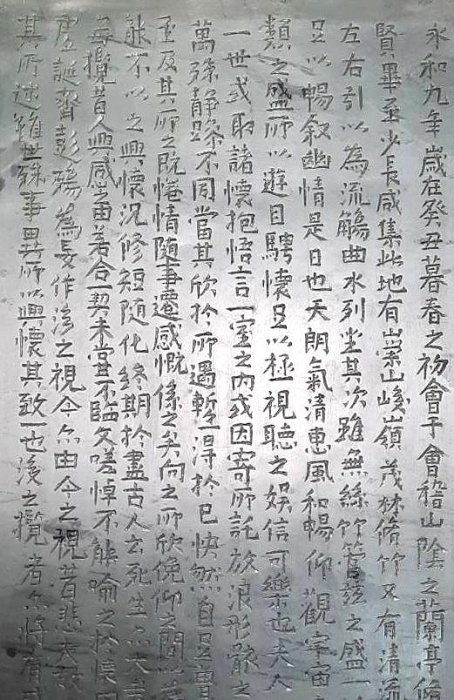 永和九年歲在癸丑暮春之初會于會稽山陰之蘭亭脩
賢畢至少長咸集此地有崇山峻嶺茂林脩竹又有清流
左右引以為流觴曲水列坐其次雖無絲竹管弦之盛一
足以暢叙幽情是日也天朗氣清惠風和暢仰觀宇宙
類之盛所以遊目騁懷足以極視聽之娛信可樂也夫人
一世或取諸懷抱悟言一室之內或因寄所託放浪形骸之
萬殊静躁不同當其欣扵所遇暫得扵己快然自足曾
至及其所之既惓情隨事遷感慨係之矣向之所欣俛仰之間以
能不以之興懷況修短隨化終期扵盡古人云死生亦大
每攬昔人興感之由若合一契未嘗不臨文嗟悼不能喻之扵懷固
虛誕齊彭殤為妄作後之視今亦由今之視昔悲夫故
其所述雖世殊事異所以興懷其致一也後之攬者亦將有